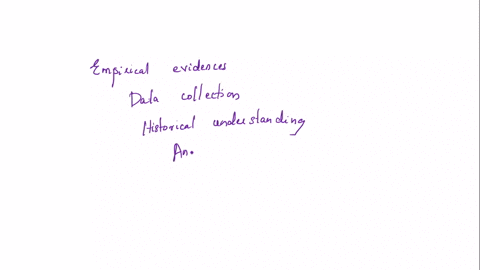 Empirical evidences
Data collection
Historical understanding
An.